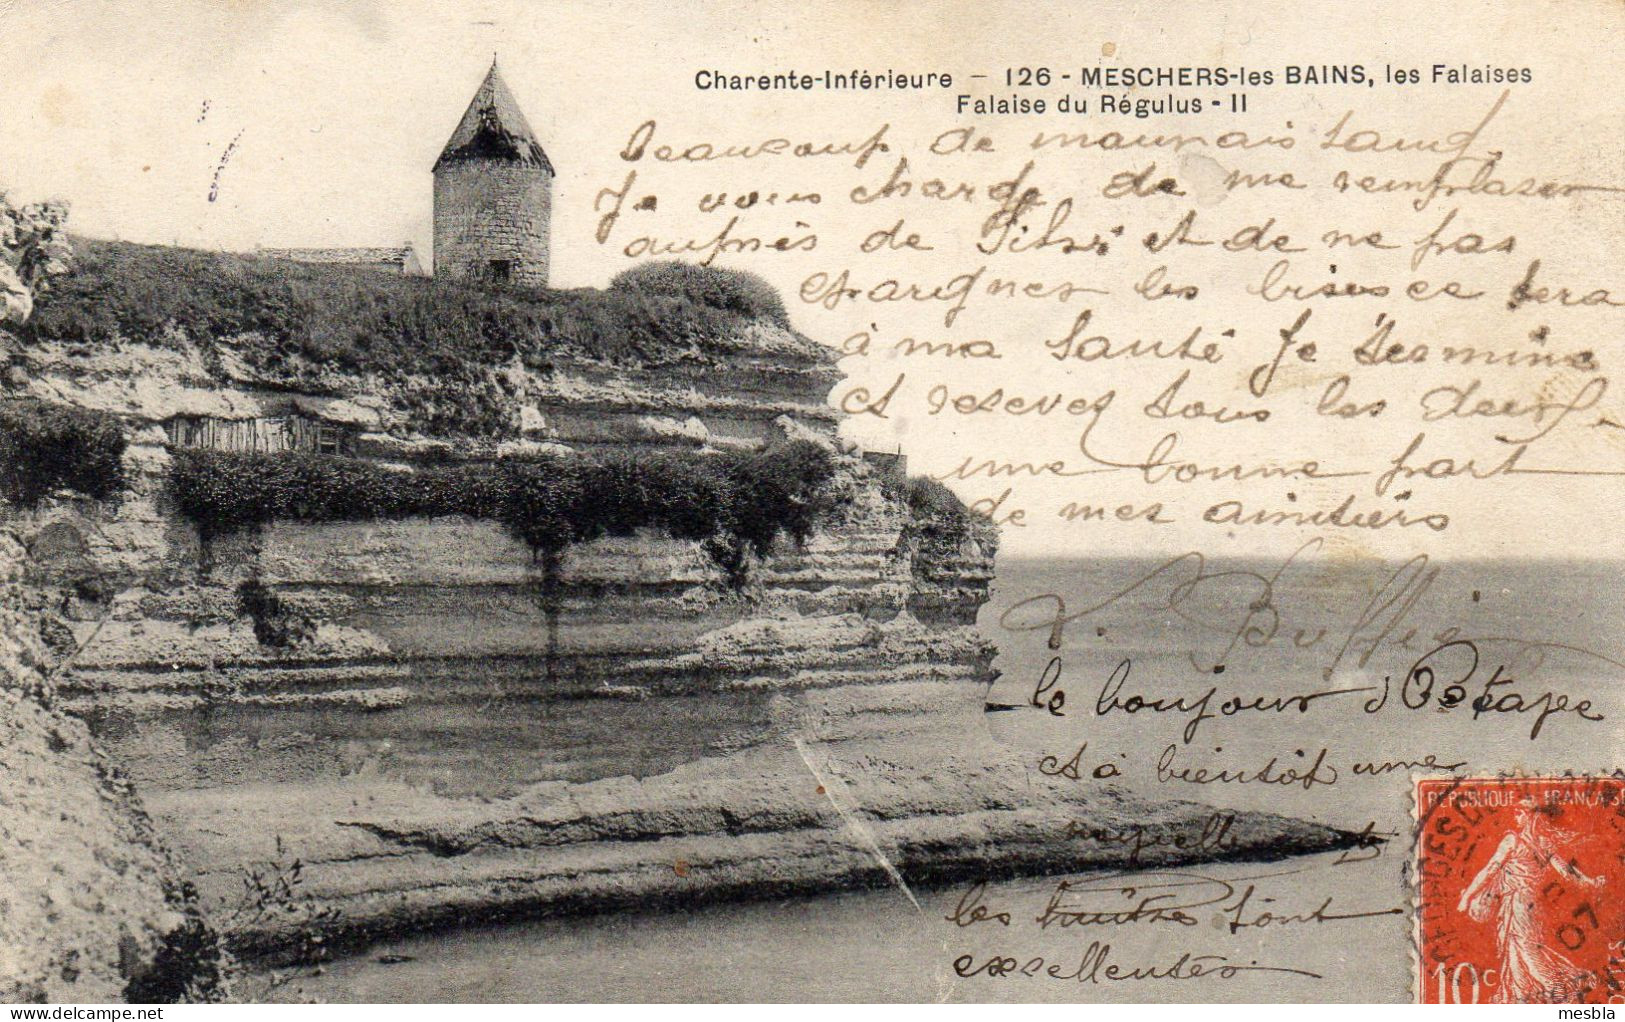 Charente-Inférieure - 126 - MESCHERS-les BAINS, les Falaises
Falaise du Régulus - II
Beaucoup de mauvais sang.
Je vous charge de me remplaser
auprès de et de ne pas
épargner les bises ce sera
à ma Santé Je termine
et resevez tous les deux
une bonne part
de mes amitiés
le bonjour d'Octavee
et à bientôt une
les huîtres sont
exsellentes
REPUBLIQUE FRANÇAISE
10 c
07
delcampe.net
mesbla